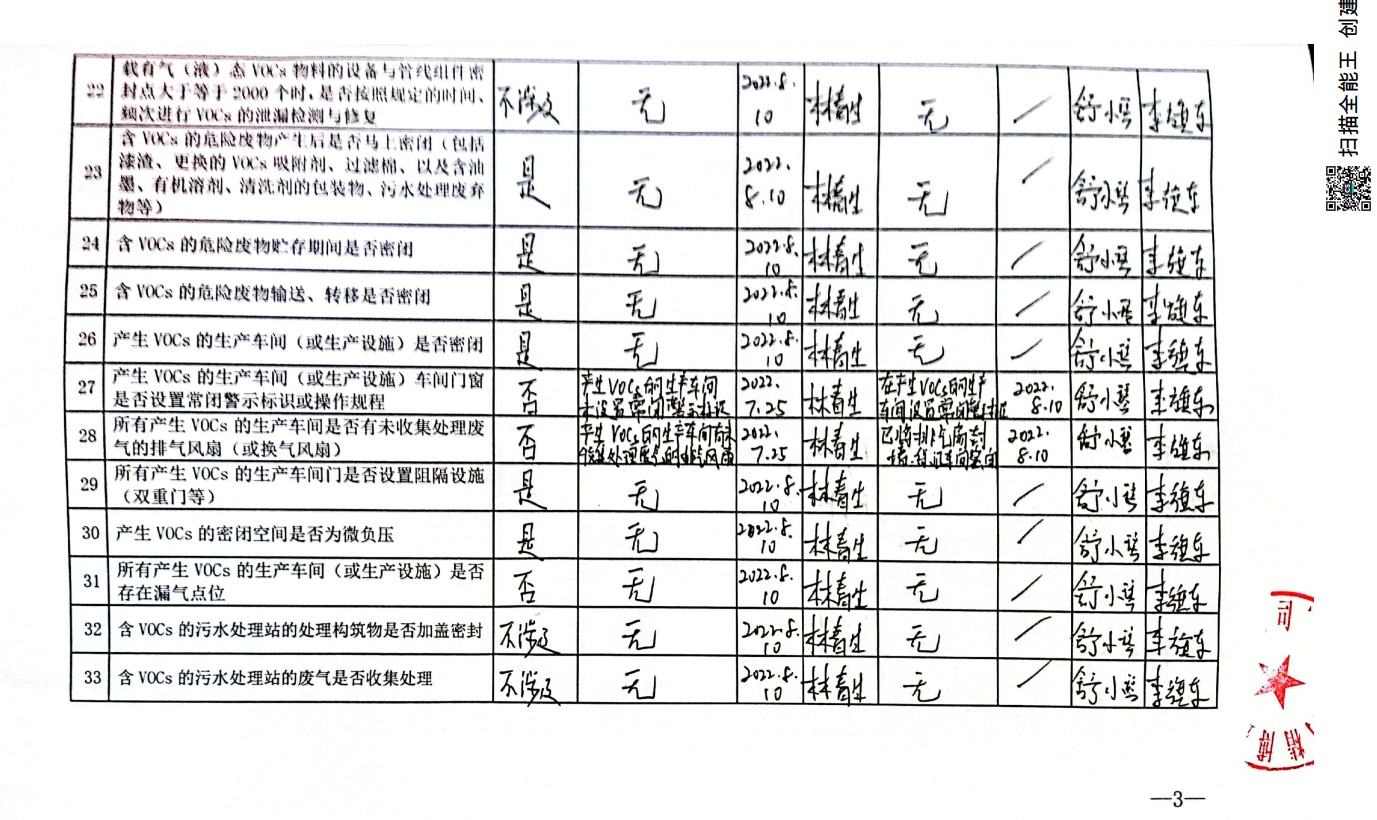 22 载有气（液）态 VOCs 物料的设备与管线组件密
封点大于等于 2000 个时，是否按照规定的时间、
频次进行 VOCs 的泄漏检测与修复 不涉及 无 2022.8.
10 林春生 无 / 舒小 李雄东
23 含 VOCs 的危险废物产生后是否马上密闭（包括
漆渣、更换的 VOCs 吸附剂、过滤棉、以及含油
墨、有机溶剂、清洗剂的包装物、污水处理废弃
物等） 是 无 2022.
8.10 林春生 无 / 舒小 李雄东
24 含 VOCs 的危险废物贮存期间是否密闭 是 无 2022.8.
10 林春生 无 / 舒小 李雄东
25 含 VOCs 的危险废物输送、转移是否密闭 是 无 2022.8.
10 林春生 无 / 舒小 李雄东
26 产生 VOCs 的生产车间（或生产设施）是否密闭 是 无 2022.8.
10 林春生 无 / 舒小 李雄东
27 产生 VOCs 的生产车间（或生产设施）车间门窗
是否设置常闭警示标识或操作规程 否 产生VOCs的生产车间
未设置常闭警示标识 2022.
7.25 林春生 在产生VOCs的生产
车间设置常闭警示标识 2022.
8.10 舒小 李雄东
28 所有产生 VOCs 的生产车间是否有未收集处理废
气的排气风扇（或换气风扇） 否 产生VOCs的生产车间有未
收集处理废气的排气风扇 2022.
7.25 林春生 已将排气扇封
堵，保证车间密闭 2022.
8.10 舒小 李雄东
29 所有产生 VOCs 的生产车间门是否设置阻隔设施
（双重门等） 是 无 2022.8.
10 林春生 无 / 舒小 李雄东
30 产生 VOCs 的密闭空间是否为微负压 是 无 2022.8.
10 林春生 无 / 舒小 李雄东
31 所有产生 VOCs 的生产车间（或生产设施）是否
存在漏气点位 否 无 2022.8.
10 林春生 无 / 舒小 李雄东
32 含 VOCs 的污水处理站的处理构筑物是否加盖密封 不涉及 无 2022.8.
10 林春生 无 / 舒小 李雄东
33 含 VOCs 的污水处理站的废气是否收集处理 不涉及 无 2022.8.
10 林春生 无 / 舒小 李雄东
—3—
扫描全能王 创建
司
精博